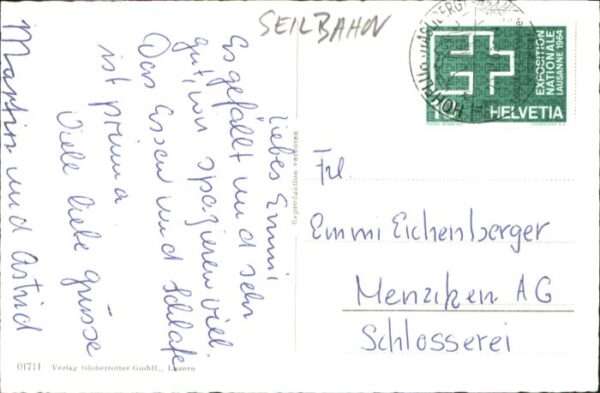 SEILBAHN
Liebes Emmi!
Es gefällt und sehr
gut, wir spazieren viel.
Das Essen und schlafe
ist prima
Viele liebe grüsse
Martin und Astrid
Reproduktion verboten
EXPOSITION
NATIONALE
LAUSANNE 1964
HELVETIA
Frl.
Emmi Eichenberger
Menziken AG
Schlosserei
01711 Verlag Globetrotter GmbH., Luzern